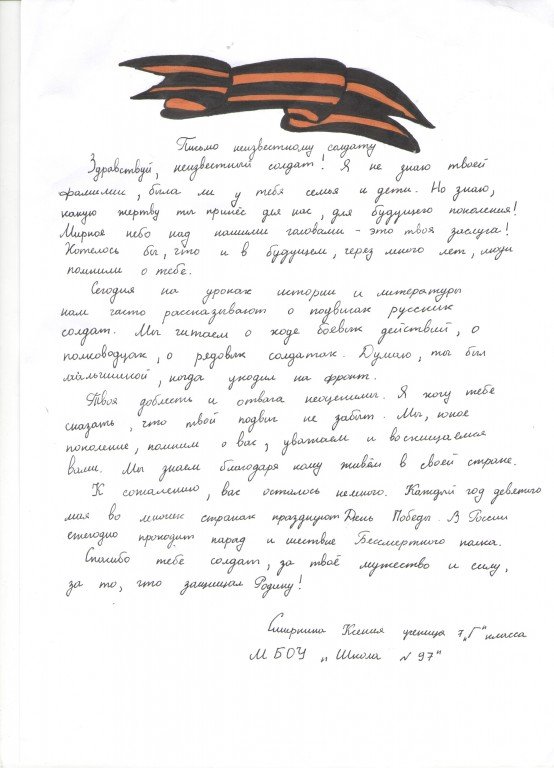 Письмо неизвестному солдату
Здравствуй, неизвестный солдат! Я не знаю твоей
фамилии, была ли у тебя семья и дети. Но знаю,
какую жертву ты принёс для нас, для будущего поколения!
Мирное небо над нашими головами - это твоя заслуга!
Хотелось бы, что и в будущем, через много лет, люди
помнили о тебе.
Сегодня на уроках истории и литературы
нам часто рассказывают о подвигах русских
солдат. Мы читаем о ходе боевых действий, о
полководцах, о рядовых солдатах. Думаю, ты был
мальчишкой, когда уходил на фронт.
Твоя доблесть и отвага неоценимы. Я хочу тебе
сказать, что твой подвиг не забыт. Мы, юное
поколение, помним о вас, уважаем и восхищаемся
вами. Мы знаем благодаря кому живём в своей стране.
К сожалению, вас осталось немного. Каждый год девятого
мая во многих странах празднуют День Победы. В России
ежегодно проходит парад и шествие Бессмертного полка.
Спасибо тебе солдат, за твоё мужество и силу,
за то, что защищал Родину!
Ксения ученица 7 „Г" класса
МБОУ „Школа №97"